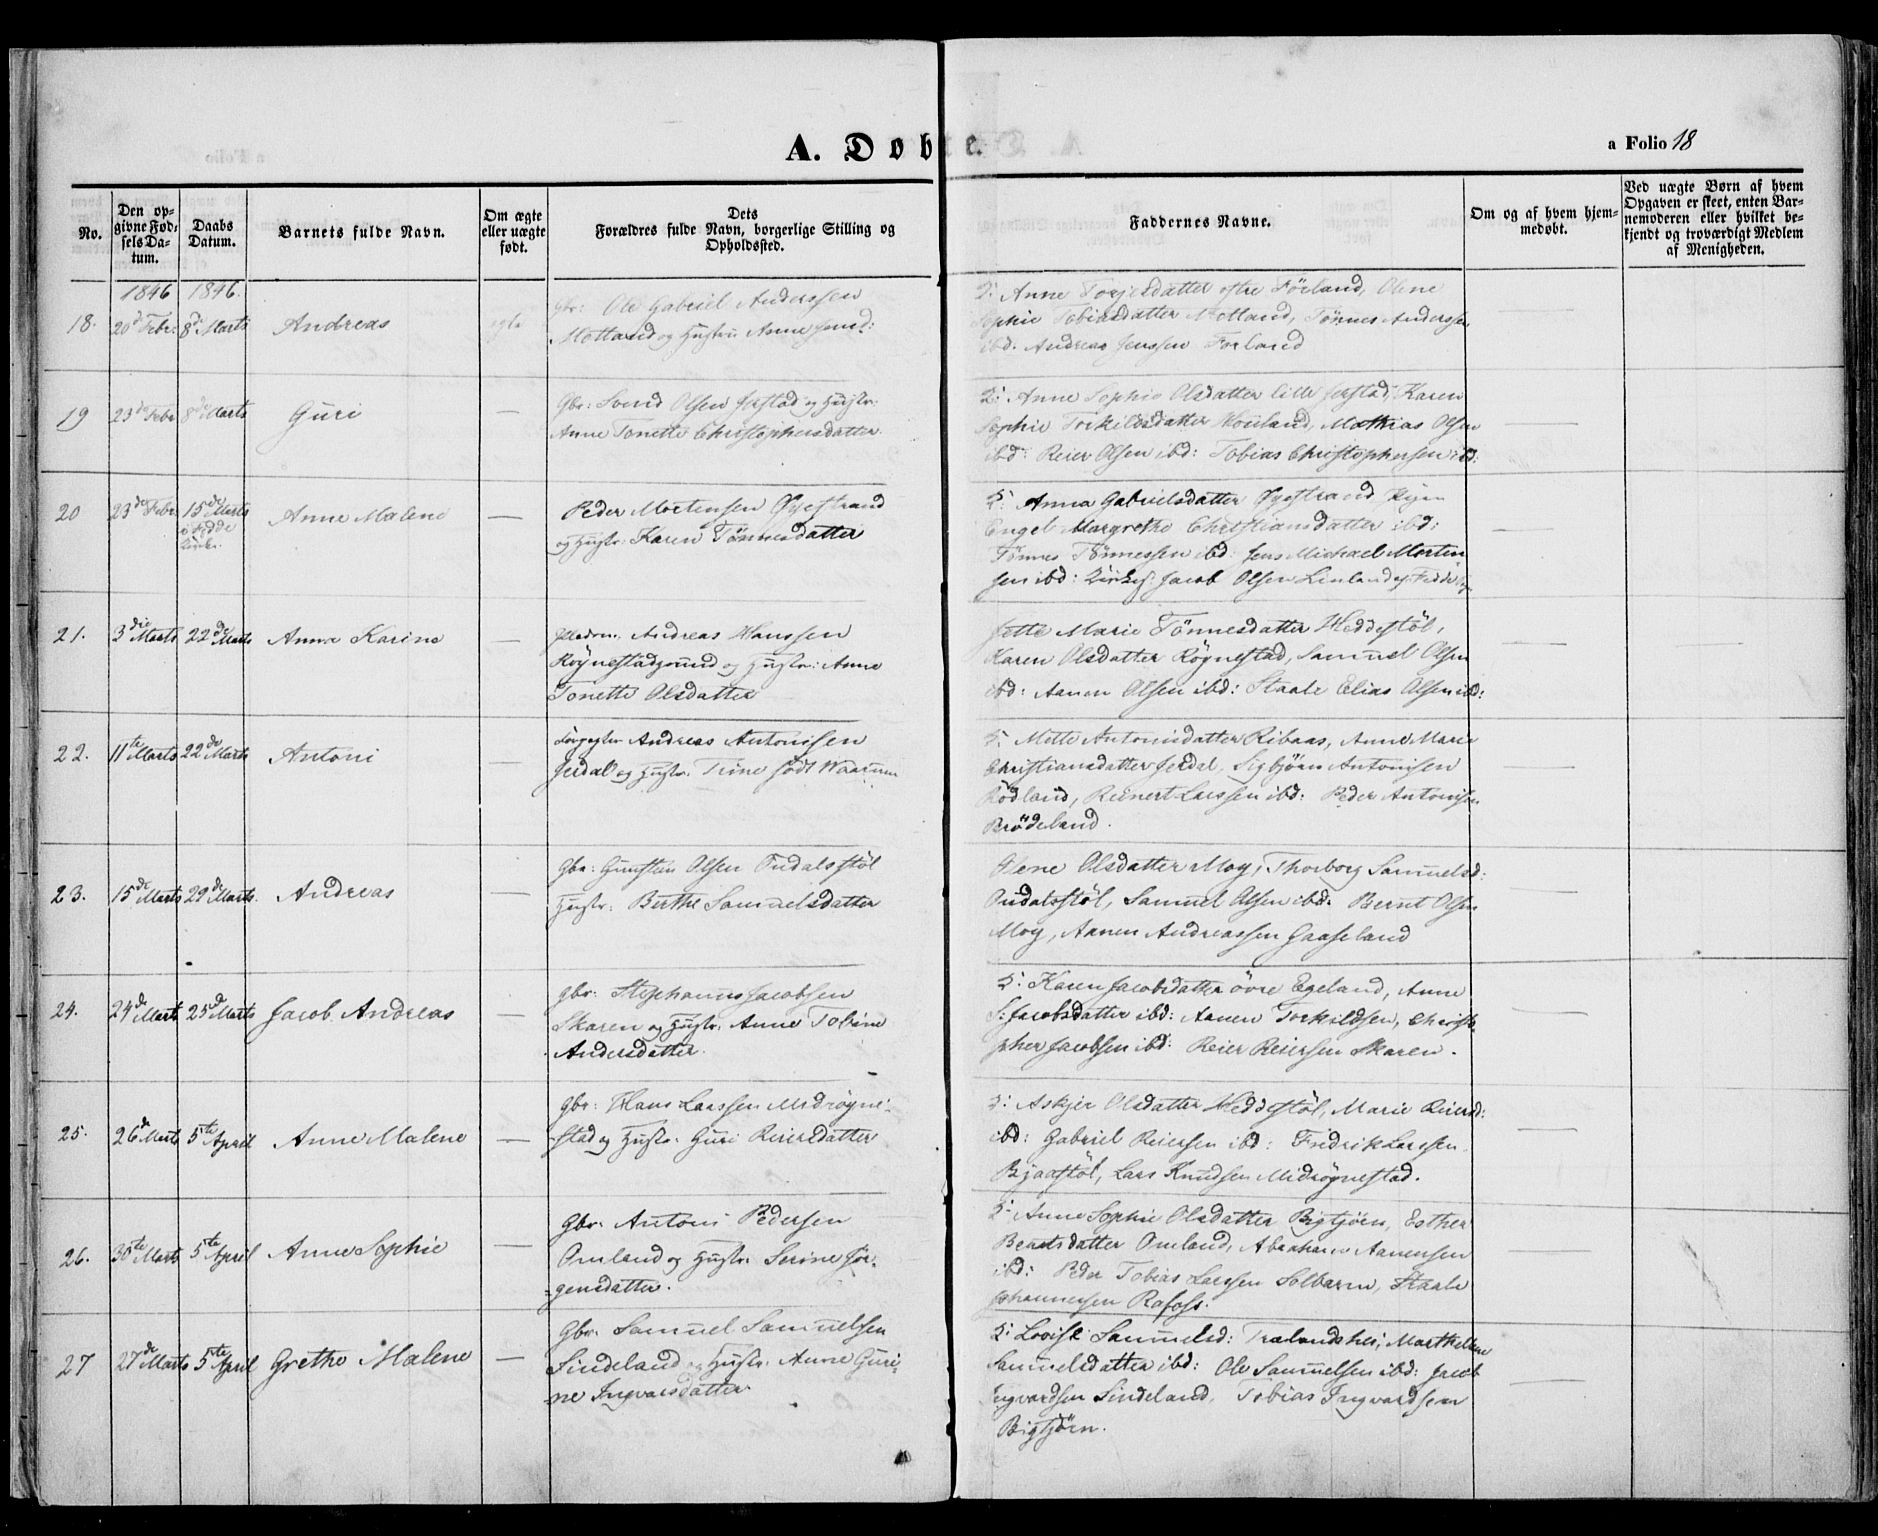 A. Døbte.
a Folio 18
No.
Den op-
givne Fød-
sels Da-
tum.
Daabs
Datum.
Barnets fulde Navn.
Om ægte
eller uægte
født.
Dets
Forældres fulde Navn, borgerlige Stilling og
Opholdssted.
Faddernes Navne.
Om og af hvem hjem-
medøbt.
Ved uægte Børn af hvem
Opgaven er skeet, enten Bar-
nemoderen eller hvilket be-
kjendt og troværdigt Medlem
af Menigheden.
1846 1846.
18. 20de Febr: 8de Marts Andreas ægte
Gbr: Ole Gabriel Anderssen
Motland og Hustru Anne
Anne Torjesdatter Förland, Olene
Sophie Tobiasdatter Motland, Tönnes Anderssen
ibd. Andreas Jenssen Forland
19 23de Febr 8de Marts Guri —
Gbr: Svend Olsen Jerstad og Hustr:
Anne Tonette Christophersdatter.
Anne Sophie Olsdatter lille Jerstad, Karen
Sophie Torkildsdatter Houland, Mathias Olsen
ibd: Reier Olsen ibd: Tobias Christophersen ibd:
20 23de Febr. 15de Marts
i Fedde
Kirke.
Anne Malene —
Peder Mortensen Øyestrand
og Hustr: Karen Tönnesdatter
Anna Gabrielsdatter Øyestrand
Engel Margrethe Christiansdatter ibd:
Tönnes Tönnessen ibd: Jens Michael Morten-
sen ibd: Jacob Olsen
21. 3die Marts 22de Marts Anna Karine —
Andreas Hanssen
Röynestadgrund og Hustr: Anne
Tonette Olsdatter
Jette Marie Tönnesdatter Heddestöl,
Karen Olsdatter Rögnestad, Samuel Olsen
ibd: Aanen Olsen ibd: Staale Elias Olsen ibd:
22. 11te Marts 22de Marts Antoni —
Andreas Antonisen
Jerdal og Hustr. Trine født
Mette Antonisdatter Ribaas, Anne Marie
Christiansdatter Jerdal, Sigbjörn Antonisen
Rödland, Reinert Larssen ibd: Peder Antonisen
Brödeland.
23. 15de Marts 29de Marts. Andreas —
Gbr: Gunsten Olsen Tudalsstöl
Hustr: Berthe Samuelsdatter
Olene Olsdatter Moy, Thorborg Samuelsd:
Tudalsstöl, Samuel Olsen ibd: Bernt Olsen
Moy, Aanen Andreassen Gaaseland
24. 24de Marts 25de Marts Jacob Andreas —
Gbr: Stephanus Jacobsen
Skaren og Hustr: Anne Tobine
Andersdatter.
Karen Jacobsdatter övre Egeland, Anne
S: Jacobsdatter ibd: Aanen Torkildsen, Christo-
pher Jacobsen ibd: Reier Reiersen Skaren.
25. 26de Marts 5te April Anne Malene —
Gbr: Hans Larssen Midrögne-
stad og Hustr. Guri Reiersdatter
Askjer Olsdatter Heddestöl, Marie Reiersd:
ibd: Gabriel Reiersen ibd: Fredrik Larssen
Bjaastöl, Lars Knudsen Midrögnestad.
26. 30te Marts 5te April Anne Sophie —
Gbr. Antoni Pedersen
Omland og Hustr. Serine Jör-
gensdatter.
Anne Sophie Olsdatter Bigtjörn, Esther
Berntsdatter Omland, Abraham Aanensen
ibd: Peder Tobias Larssen Solbarm, Staale
Johannessen Rafoss.
27 27de Marts 5te April Grethe Malene —
Gbr. Samuel Samuelsen
Sindeland og Hustr. Anne Guri-
ne Ingvarsdatter
Lovise Samuelsd: Trælandshei, Marthe
Samuelsdatter ibd: Ole Samuelsen ibd: Jacob
Ingvardsen Sindeland, Tobias Ingvardsen
Bigtjörn.